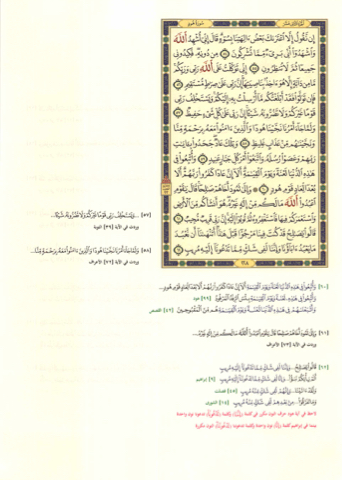 سورة هود
إِن نَّقُولُ إِلَّا ٱعْتَرَىٰكَ بَعْضُ ءَالِهَتِنَا بِسُوٓءٍ قَالَ إِنِّىٓ أُشْهِدُ ٱللَّهَ
وَٱشْهَدُوٓا۟ أَنِّى بَرِىٓءٌ مِّمَّا تُشْرِكُونَ ٥٤ مِن دُونِهِۦ فَكِيدُونِى
جَمِيعًا ثُمَّ لَا تُنظِرُونِ ٥٥ إِنِّى تَوَكَّلْتُ عَلَى ٱللَّهِ رَبِّى وَرَبِّكُم
مَّا مِن دَآبَّةٍ إِلَّا هُوَ ءَاخِذٌۢ بِنَاصِيَتِهَآ إِنَّ رَبِّى عَلَىٰ صِرَٰطٍ مُّسْتَقِيمٍ ٥٦
فَإِن تَوَلَّوْا۟ فَقَدْ أَبْلَغْتُكُم مَّآ أُرْسِلْتُ بِهِۦٓ إِلَيْكُمْ وَيَسْتَخْلِفُ رَبِّى
قَوْمًا غَيْرَكُمْ وَلَا تَضُرُّونَهُۥ شَيْـًٔا إِنَّ رَبِّى عَلَىٰ كُلِّ شَىْءٍ حَفِيظٌ ٥٧
وَلَمَّا جَآءَ أَمْرُنَا نَجَّيْنَا هُودًا وَٱلَّذِينَ ءَامَنُوا۟ مَعَهُۥ بِرَحْمَةٍ مِّنَّا
وَنَجَّيْنَٰهُم مِّنْ عَذَابٍ غَلِيظٍ ٥٨ وَتِلْكَ عَادٌ جَحَدُوا۟ بِـَٔايَٰتِ
رَبِّهِمْ وَعَصَوْا۟ رُسُلَهُۥ وَٱتَّبَعُوٓا۟ أَمْرَ كُلِّ جَبَّارٍ عَنِيدٍ ٥٩ وَأُتْبِعُوا۟ فِى
هَٰذِهِ ٱلدُّنْيَا لَعْنَةً وَيَوْمَ ٱلْقِيَٰمَةِ أَلَآ إِنَّ عَادًا كَفَرُوا۟ رَبَّهُمْ أَلَا
بُعْدًا لِّعَادٍ قَوْمِ هُودٍ ٦٠ وَإِلَىٰ ثَمُودَ أَخَاهُمْ صَٰلِحًا قَالَ يَٰقَوْمِ
ٱعْبُدُوا۟ ٱللَّهَ مَا لَكُم مِّنْ إِلَٰهٍ غَيْرُهُۥ هُوَ أَنشَأَكُم مِّنَ ٱلْأَرْضِ
وَٱسْتَعْمَرَكُمْ فِيهَا فَٱسْتَغْفِرُوهُ ثُمَّ تُوبُوٓا۟ إِلَيْهِ إِنَّ رَبِّى قَرِيبٌ مُّجِيبٌ ٦١
قَالُوا۟ يَٰصَٰلِحُ قَدْ كُنتَ فِينَا مَرْجُوًّا قَبْلَ هَٰذَآ أَتَنْهَىٰنَآ أَن نَّعْبُدَ
مَا يَعْبُدُ ءَابَآؤُنَا وَإِنَّنَا لَفِى شَكٍّ مِّمَّا تَدْعُونَآ إِلَيْهِ مُرِيبٍ ٦٢
٢٢٨
[٥٧] ...وَيَسْتَخْلِفُ رَبِّى قَوْمًا غَيْرَكُمْ وَلَا تَضُرُّونَهُۥ شَيْـًٔا...
وردت في الآية [٣٩] التوبة
[٥٨] وَلَمَّا جَآءَ أَمْرُنَا نَجَّيْنَا هُودًا وَٱلَّذِينَ ءَامَنُوا۟ مَعَهُۥ بِرَحْمَةٍ مِّنَّا...
وردت في الآية [٧٢] الأعراف
[٦٠] وَأُتْبِعُوا۟ فِى هَٰذِهِ ٱلدُّنْيَا لَعْنَةً وَيَوْمَ ٱلْقِيَٰمَةِ أَلَآ إِنَّ عَادًا كَفَرُوا۟ رَبَّهُمْ أَلَا بُعْدًا لِّعَادٍ قَوْمِ هُودٍ...
وَأُتْبِعُوا۟ فِى هَٰذِهِۦ لَعْنَةً وَيَوْمَ ٱلْقِيَٰمَةِ بِئْسَ ٱلرِّفْدُ ٱلْمَرْفُودُ [٩٩] هود
وَأَتْبَعْنَٰهُمْ فِى هَٰذِهِ ٱلدُّنْيَا لَعْنَةً وَيَوْمَ ٱلْقِيَٰمَةِ هُم مِّنَ ٱلْمَقْبُوحِينَ [٤٢] القصص
[٦١] وَإِلَىٰ ثَمُودَ أَخَاهُمْ صَٰلِحًا قَالَ يَٰقَوْمِ ٱعْبُدُوا۟ ٱللَّهَ مَا لَكُم مِّنْ إِلَٰهٍ غَيْرُهُۥ...
وردت في الآية [٧٣] الأعراف
[٦٢] قَالُوا۟ يَٰصَٰلِحُ ...وَإِنَّنَا لَفِى شَكٍّ مِّمَّا تَدْعُونَآ إِلَيْهِ مُرِيبٍ